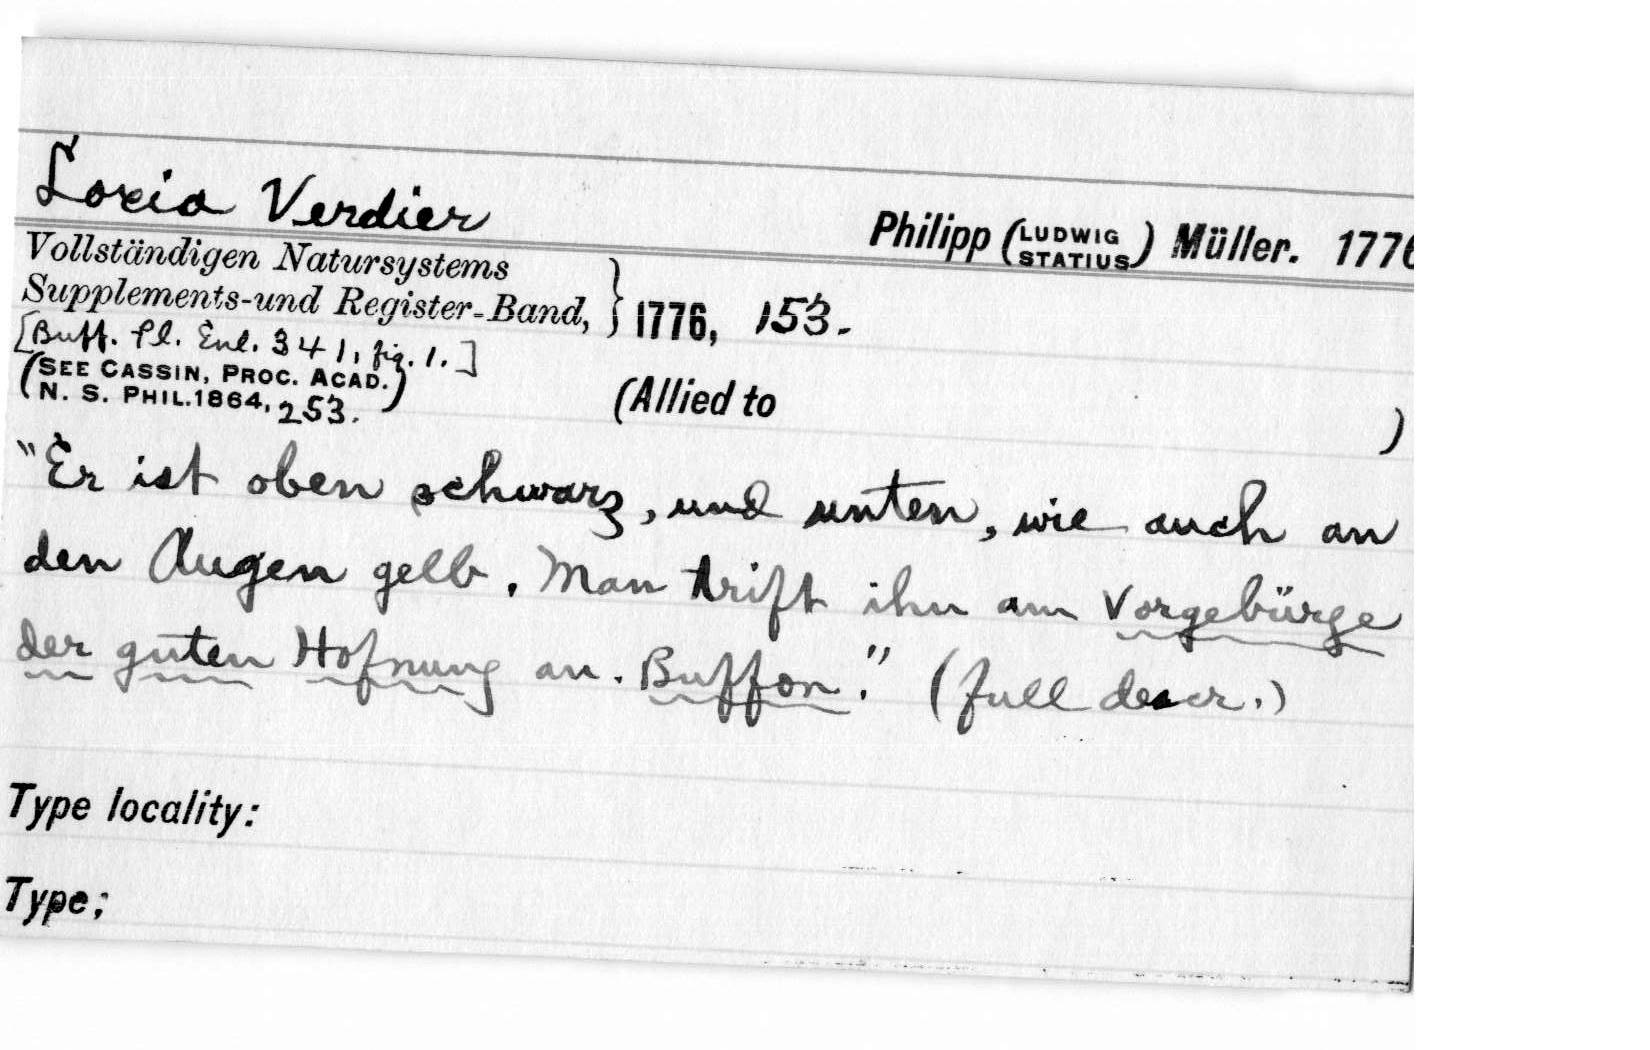 Loxia Verdier
Philipp (LUDWIG STATIUS) Müller. 1776
Vollständigen Natursystems
Supplements-und Register-Band, } 1776, 153.
[Buff. Pl. Enl. 341, fig. 1.]
(SEE CASSIN, PROC. ACAD.
N. S. PHIL. 1864, 253.)
(Allied to )
"Er ist oben schwarz, und unten, wie auch an
den Augen gelb. Man trift ihn am Vorgebürge
der guten Hofnung an. Buffon." (full descr.)
Type locality:
Type;